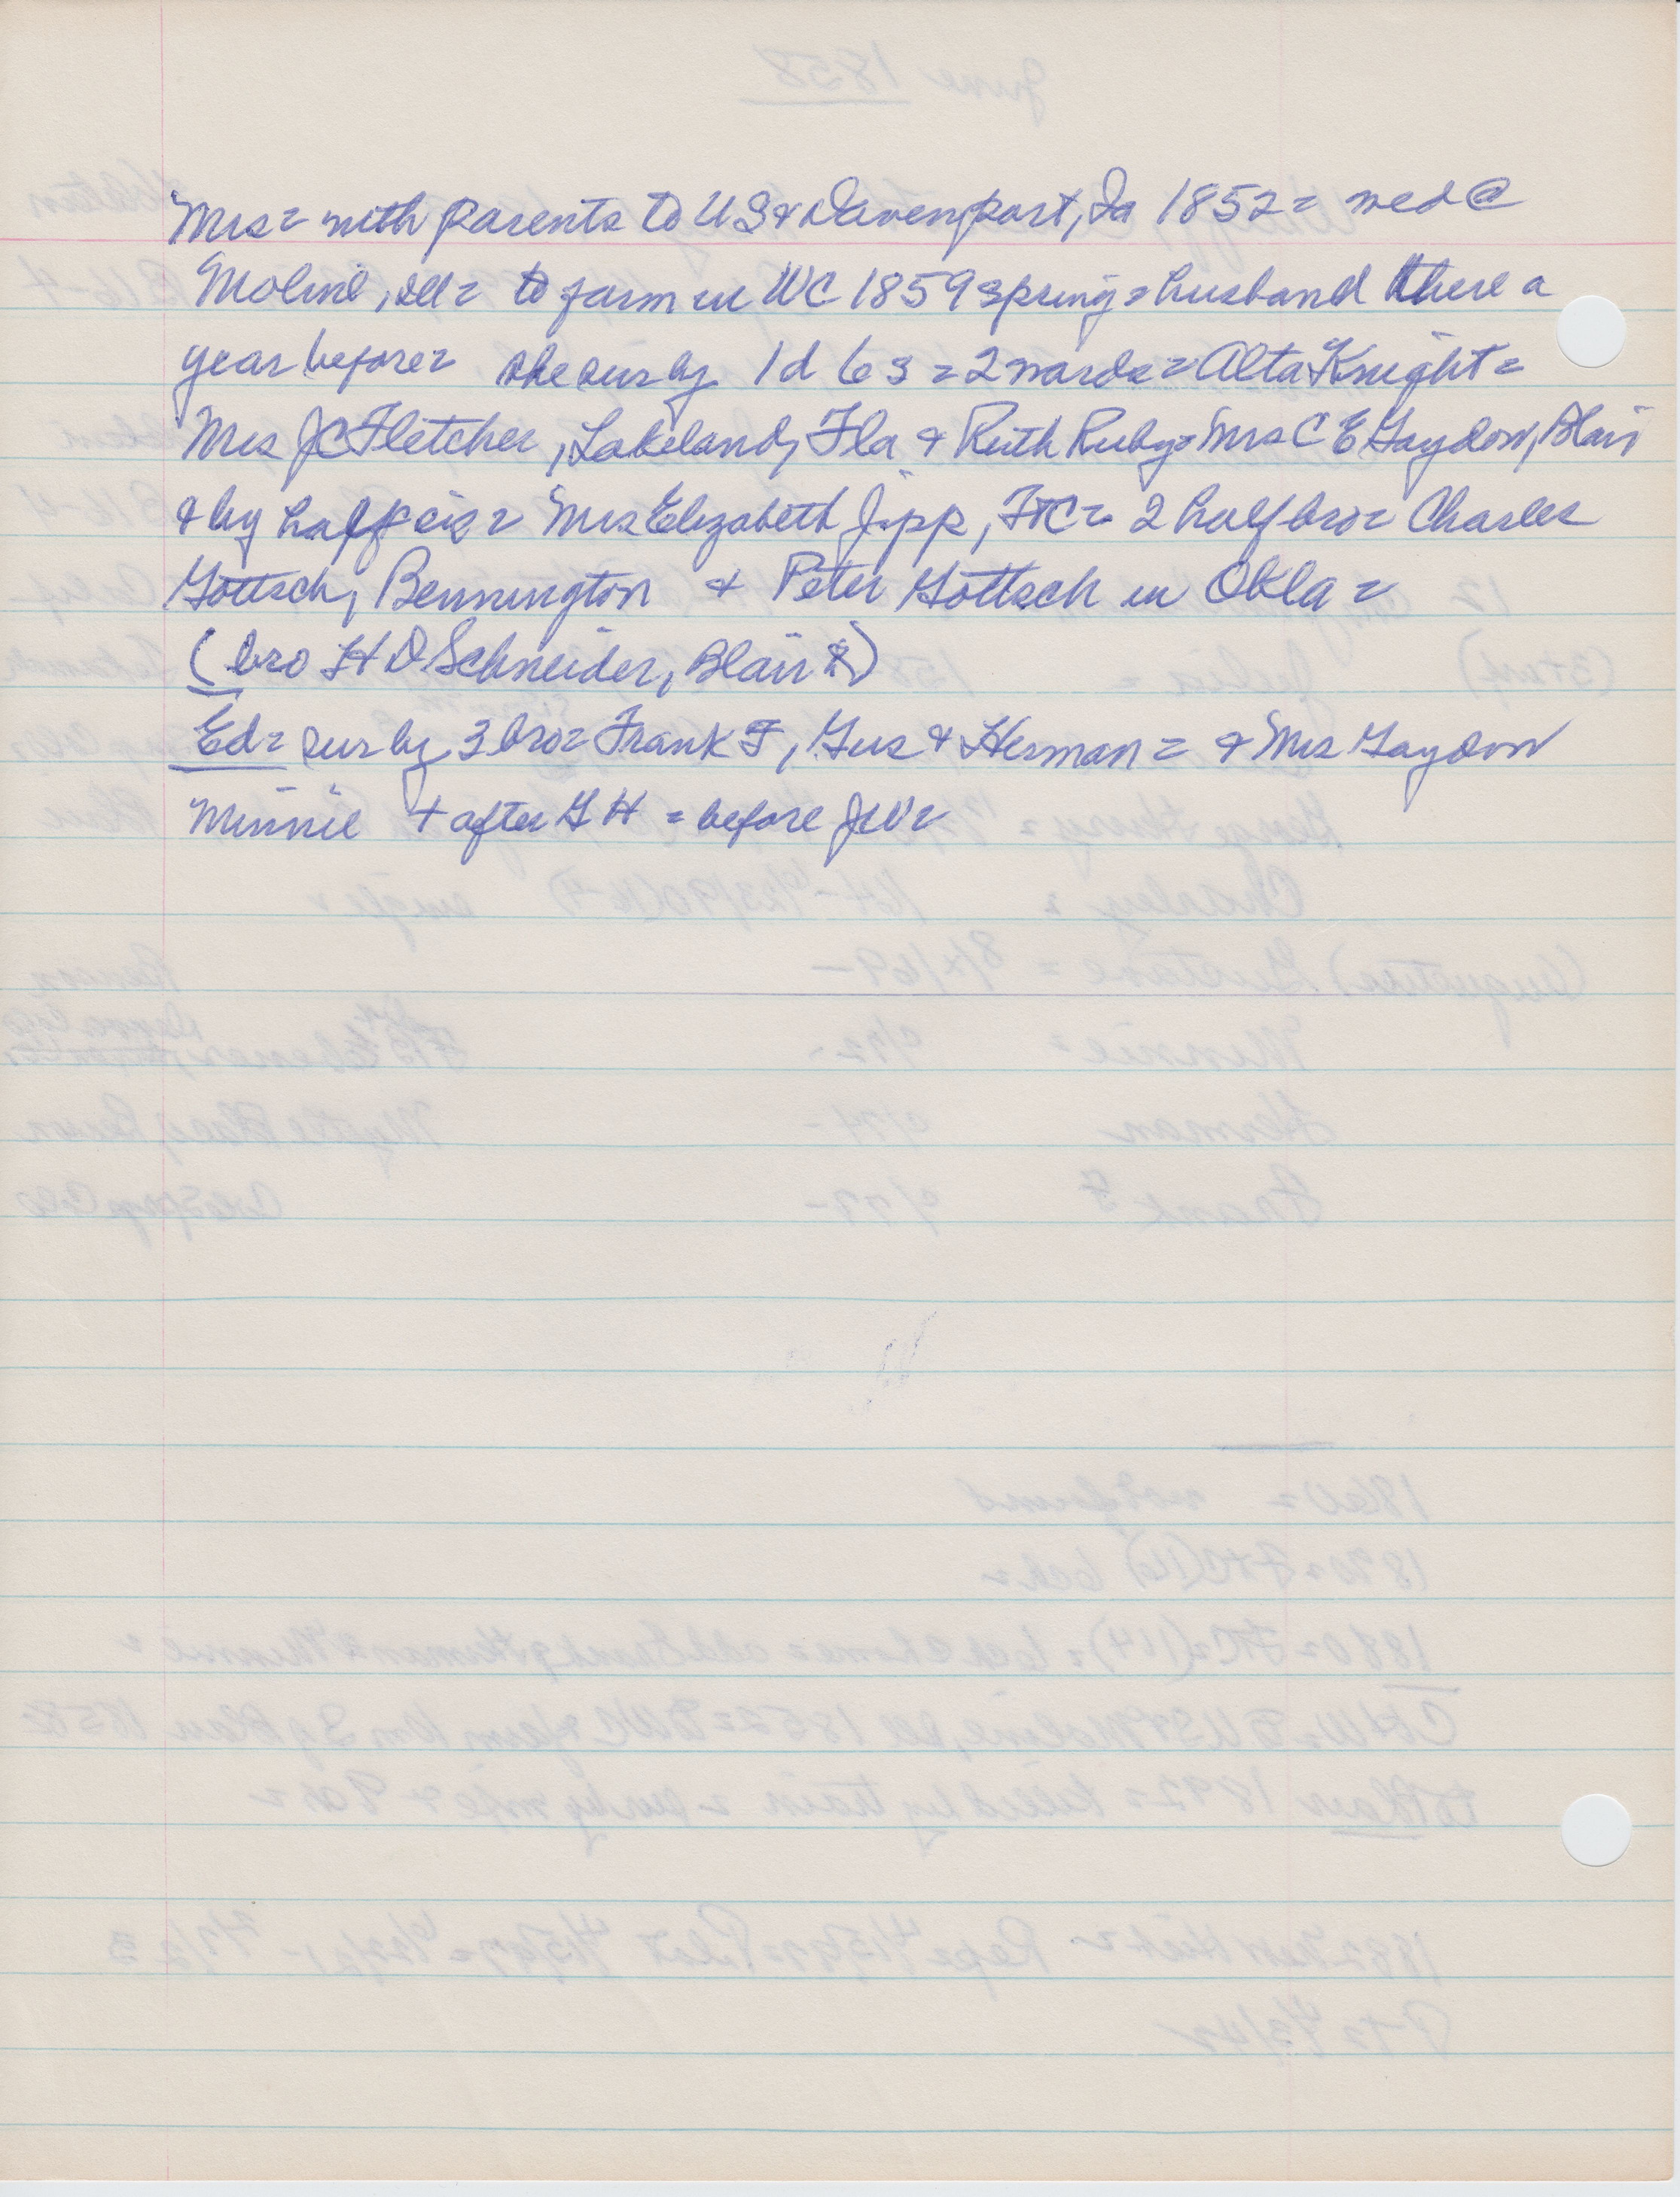 Mrs = with parents to US & Davenport, Ia 1852 = wed @
Moline, Ill = to farm in WC 1859 spring = husband there a
year before = she sur by 1d 6s = 2 wards = Alta Knight =
Mrs JC Fletcher, Lakeland, Fla & Ruth Ruby = Mrs C E Gaydou, Blair
& by half sis = Mrs Elizabeth Jipp, FTC = 2 half bro = Charles
Gottsch, Bennington & Peter Gottsch in Okla =
(bro H D Schneider, Blair)
Ed = sur by 3 bro = Frank F, Gus & Herman = & Mrs Gaydou
Minnie + after GH = before JW =